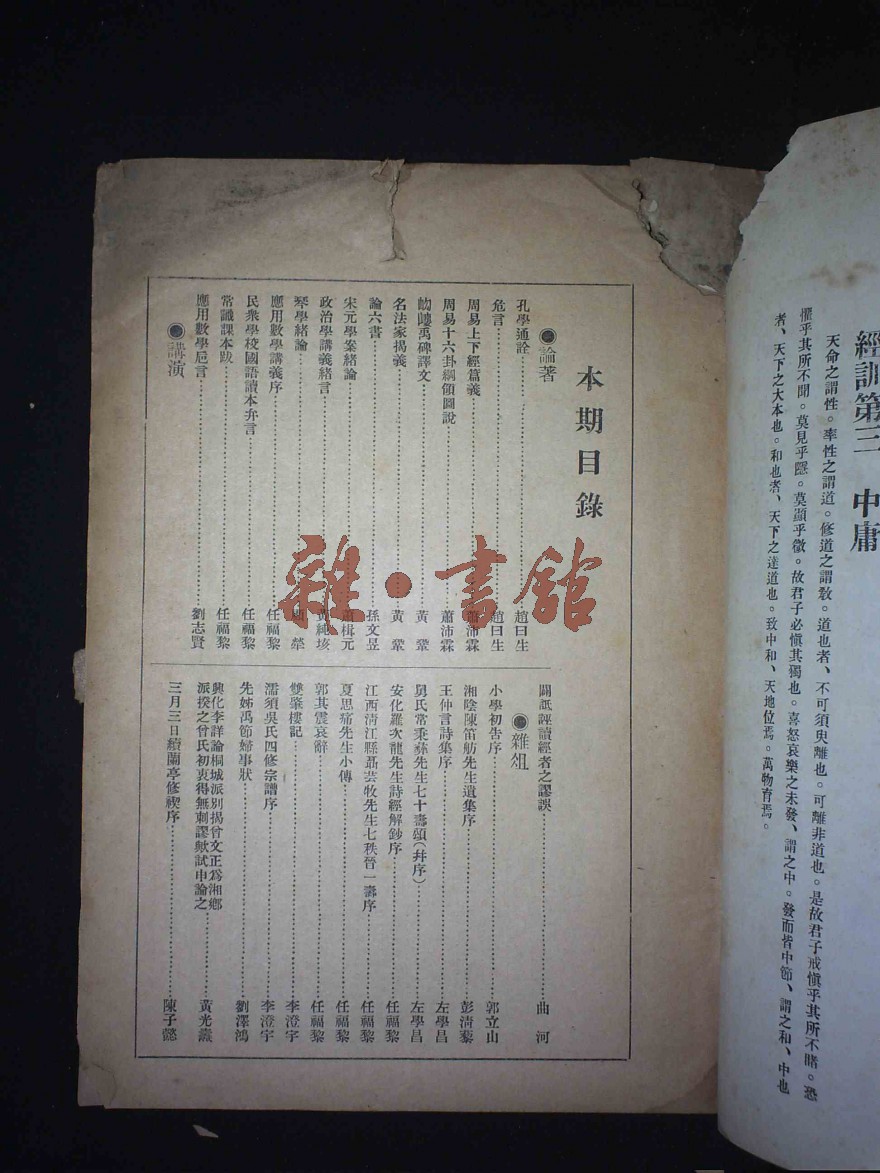 經訓第三　中庸
天命之謂性。率性之謂道。修道之謂教。道也者、不可須臾離也。可離非道也。是故君子戒愼乎其所不睹。恐
懼乎其所不聞。莫見乎隱。莫顯乎微。故君子必愼其獨也。喜怒哀樂之未發、謂之中。發而皆中節、謂之和、中也
者、天下之大本也。和也者、天下之達道也。致中和、天地位焉。萬物育焉。
本期目錄
●論著
孔學通詮 趙日生
危言 趙日生
周易上下經篇義 蕭沛霖
周易十六卦綱領圖說 蕭沛霖
岣嶁禹碑譯文 黃鞏
名法家揭義 黃鞏
論六書 孫文昱
宋元學案緒論 楫元
政治學講義緒言 黃純垓
琴學緒論 顧犖
應用數學講義序 任福黎
民衆學校國語讀本弁言 任福黎
常識課本跋 任福黎
應用數學巵言 劉志賢
●講演
闢詆諲讀經者之謬誤 曲河
●雜俎
小學初告序 郭立山
湘陰陳笛舫先生遺集序 彭淸藜
王仲言詩集序 左學昌
舅氏常秉彝先生七十壽頌(幷序) 左學昌
安化羅次龍先生詩經解鈔序 任福黎
江西清江縣聶芸牧先生七秩晉一壽序 任福黎
夏思痛先生小傳 任福黎
郭其震哀辭 任福黎
雙肇樓記 李澄宇
濡須吳氏四修宗譜序 李澄宇
先姊禹節婦事狀 劉澤鴻
興化李詳論桐城派別揭曾文正爲湘鄕
派揆之曾氏初衷得無刺謬歟試申論之 黃光燾
三月三日續蘭亭修禊序 陳子懿
雜·書館